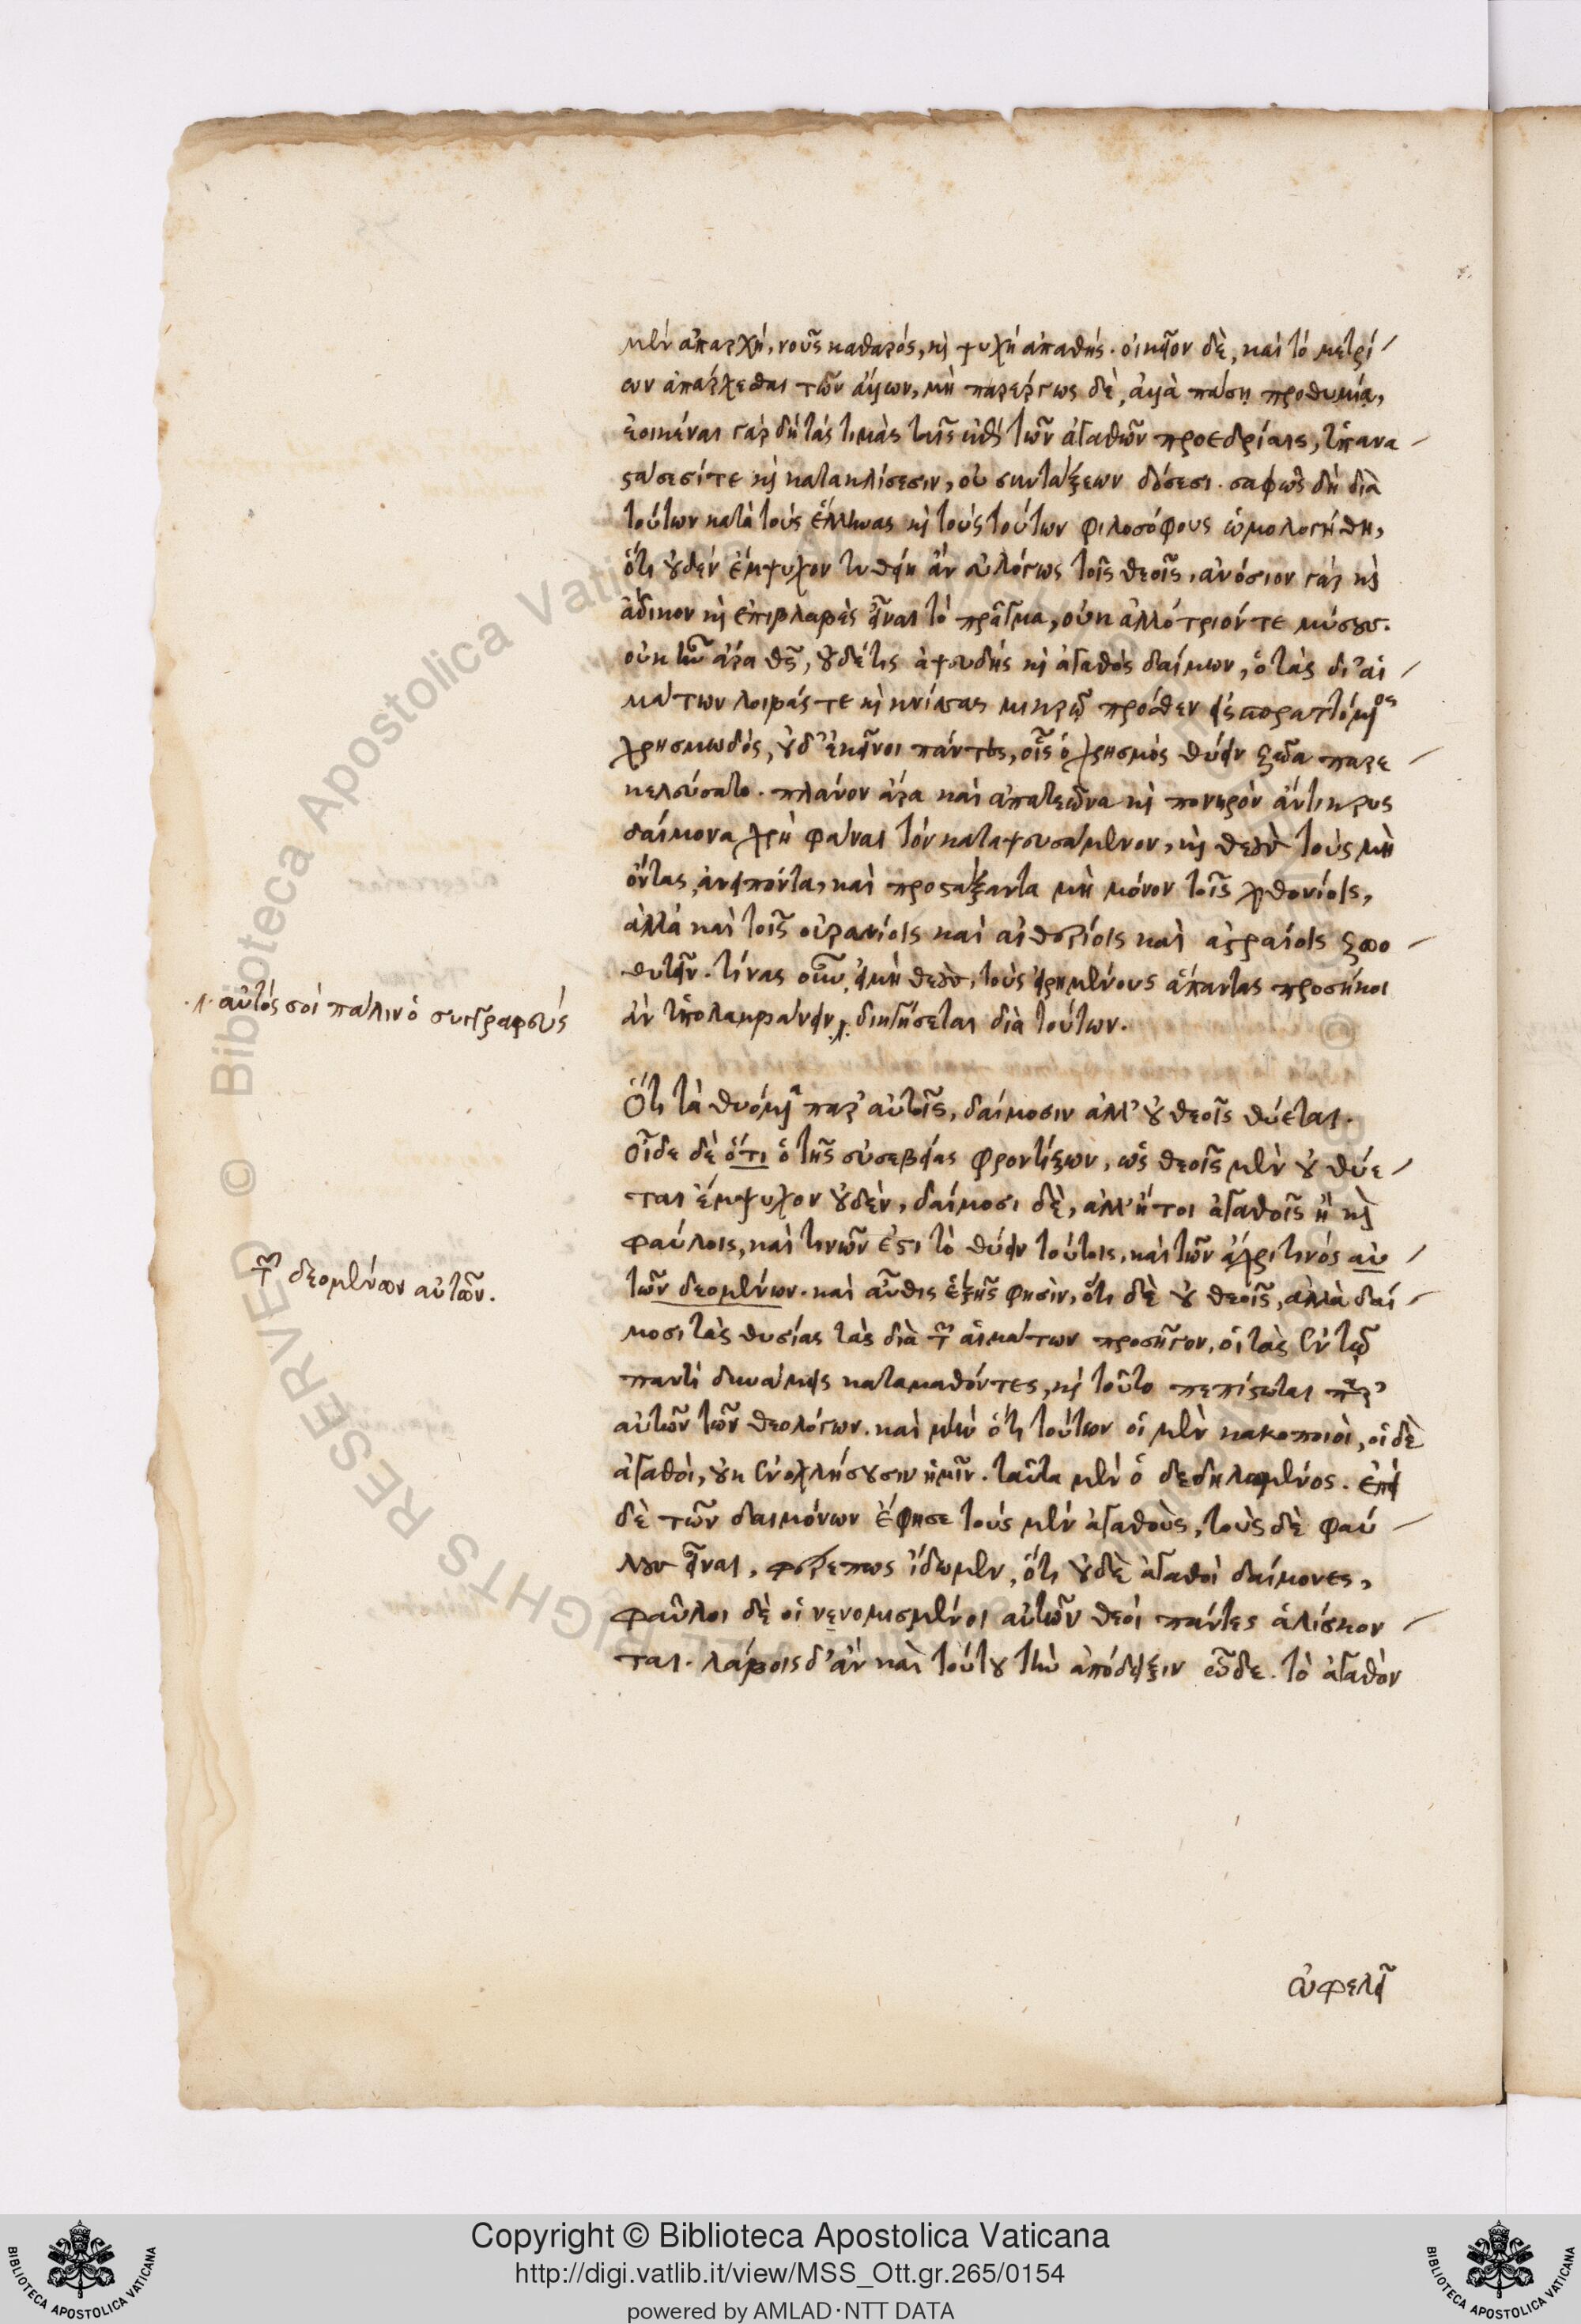 μὲν ἀπαρχή, νοῦς καθαρός, καὶ ψυχὴ ἀπαθής. οἰκεῖον δὲ, καὶ τὸ μετρί
ων ἀπάρχεσθαι τῶν ἄλλων, μὴ παρέργως δὲ, ἀλλὰ πάσῃ προθυμίᾳ,
ἐοικέναι γὰρ δεῖ τὰς τιμὰς ταῖς ἐπὶ τῶν ἀγαθῶν προεδρίαις, ὑπανα
στάσεσί τε καὶ κατακλίσεσιν, οὐ συντάξεων δόσεσι. σαφῶς δὴ διὰ
τούτων κατὰ τοὺς ἕλληνας καὶ τοὺς τούτων φιλοσόφους ὡμολογήθη,
ὅτι οὐδὲν ἔμψυχον τυθείη ἂν εὐλόγως τοῖς θεοῖς. ἀνόσιον γὰρ καὶ
ἄδικον καὶ ἐπιβλαβὲς εἶναι τὸ πρᾶγμα, οὐκ ἀλλότριόν τε μύσους.
οὐκ ἦν ἄρα θεὸς, οὐδέ τις ἀψευδὴς καὶ ἀγαθὸς δαίμων, ὁ τὰς δι' αἱ
μάτων λοιβάς τε καὶ κνίσσας μικρῷ πρόσθεν εἰσπραττόμενος
χρησμωδός, οὐδ' ἐκεῖνοι πάντες, οἷς ὁ χρησμὸς θύειν ζῶα παρε
κελεύσατο. πλάνον ἄρα καὶ ἀπατεῶνα καὶ πονηρὸν ἄντικρυς
δαίμονα χρὴ φάναι τὸν καταψευσάμενον, καὶ θεοὺς τοὺς μὴ
ὄντας ἀνειπόντα, καὶ προστάξαντα μὴ μόνον τοῖς χθονίοις,
ἀλλὰ καὶ τοῖς οὐρανίοις καὶ αἰθερίοις καὶ ἀστραίοις ζωο
θυτεῖν. τίνας οὖν, εἰ μὴ θεοὺς, τοὺς εἰρημένους ἅπαντας προσήκοι
ἂν ὑπολαμβάνειν, διηγήσεται διὰ τούτων.
αὐτός σοι πάλιν ὁ συγγραφεὺς
Ὅτι τὰ θυόμενα παρ' αὐτοῖς, δαίμοσιν ἀλλ' οὐ θεοῖς θύεται.
Οἶδε δὲ ὅτι ὁ τῆς εὐσεβείας φροντίζων, ὡς θεοῖς μὲν οὐ θύε
ται ἔμψυχον οὐδὲν, δαίμοσι δὲ, ἀλλ' ἤτοι ἀγαθοῖς ἢ καὶ
φαύλοις, καὶ τινῶν ἐστι τὸ θύειν τούτοις, καὶ τῶν ἄχρι τινός αὐ
τῶν δεομένων. καὶ αὖθις ἑξῆς φησὶν, ὅτι δὲ οὐ θεοῖς, ἀλλὰ δαί
τῶν δεομένων αὐτῶν.
μοσι τὰς θυσίας τὰς διὰ τῶν αἱμάτων προσῆγον, οἱ τὰς ἐν τῷ
παντὶ δυνάμεις καταμαθόντες, καὶ τοῦτο πεπίστωται παρ'
αὐτῶν τῶν θεολόγων. καὶ μὴν ὅτι τούτων οἱ μὲν κακοποιοὶ, οἱ δὲ
ἀγαθοὶ, οὐκ ἐνοχλήσουσιν ἡμῖν. ταῦτα μὲν ὁ δεδηλωμένος. ἐπεὶ
δὲ τῶν δαιμόνων ἔφησε τοὺς μὲν ἀγαθοὺς, τοὺς δὲ φαύ
λους εἶναι, φέρε πως ἴδωμεν, ὅτι οὐδὲ ἀγαθοὶ δαίμονες,
φαῦλοι δὲ οἱ νενομισμένοι αὐτῶν θεοὶ πάντες ἁλίσκον
ται. λάβοις δ' ἂν καὶ τούτου τὴν ἀπόδειξιν ὧδε. τὸ ἀγαθὸν
ὠφελεῖ
Copyright © Biblioteca Apostolica Vaticana
http://digi.vatlib.it/view/MSS_Ott.gr.265/0154
powered by AMLAD·NTT DATA